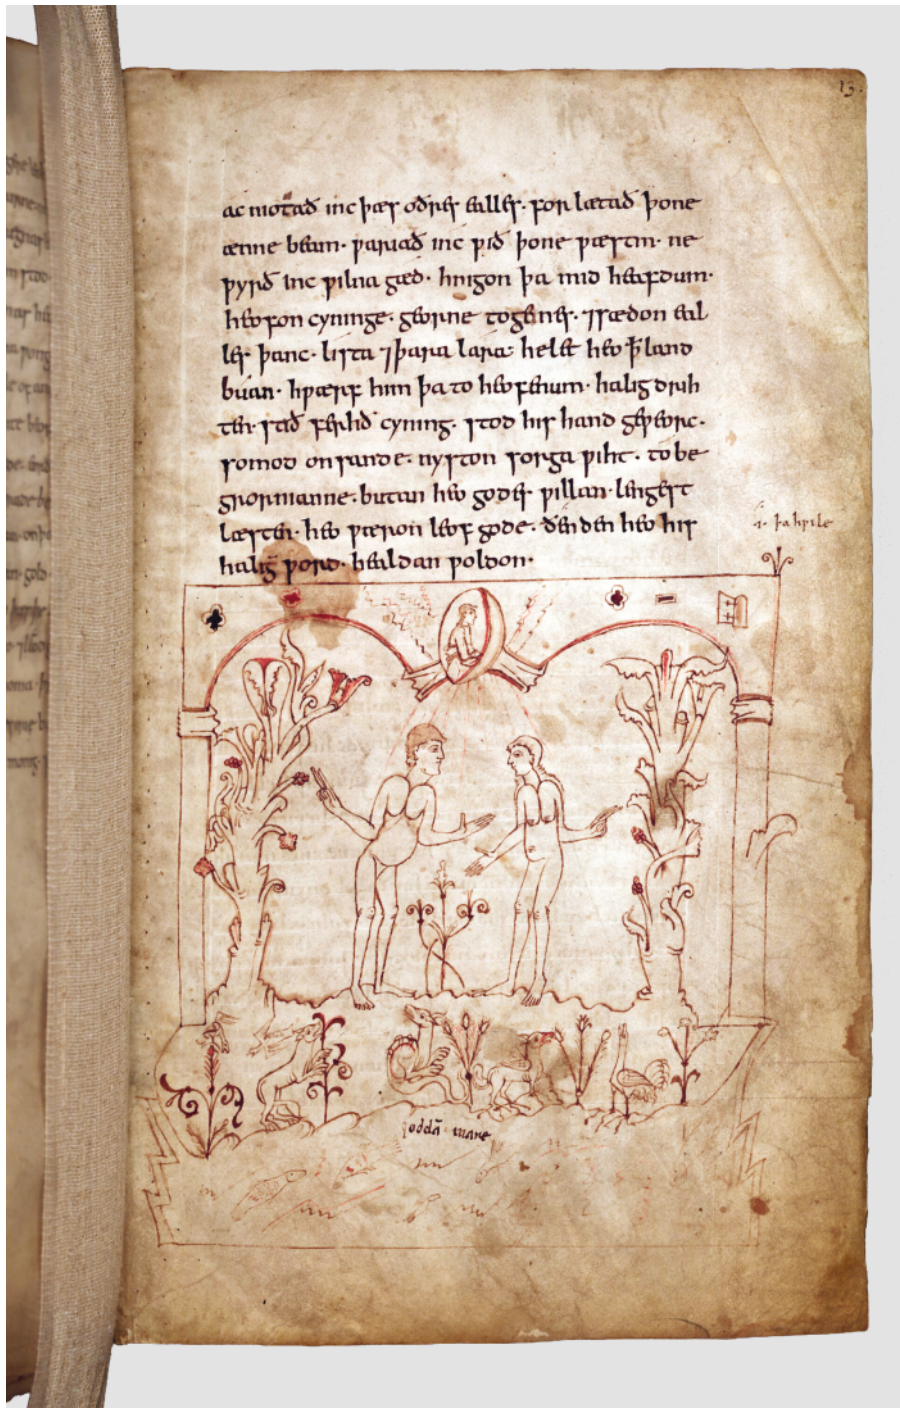 13.
ac niotað inc þæs oðres ealles· forlætað þone
ænne beam· ƿariað inc ƿið þone ƿæstm· ne
ƿyrð inc ƿilna gæd· hnigon þa mid heafdum·
heofon cyninge· georne togenes· ⁊sædon eal
les þanc· lista ⁊þara lara· helet heo ꝥland
buan· hƿærf him þa to heofenum· halig drih
ten· stið ferhð cyning· stod his hand geƿeorc·
somod on sande· nyston sorga ƿiht· to be
grornianne· butan heo godes ƿillan· lengest
læsten· heo ƿæron leof gode· ðenden heo his
i· þa hƿile
halig ƿord· healdan ƿoldon·
mare